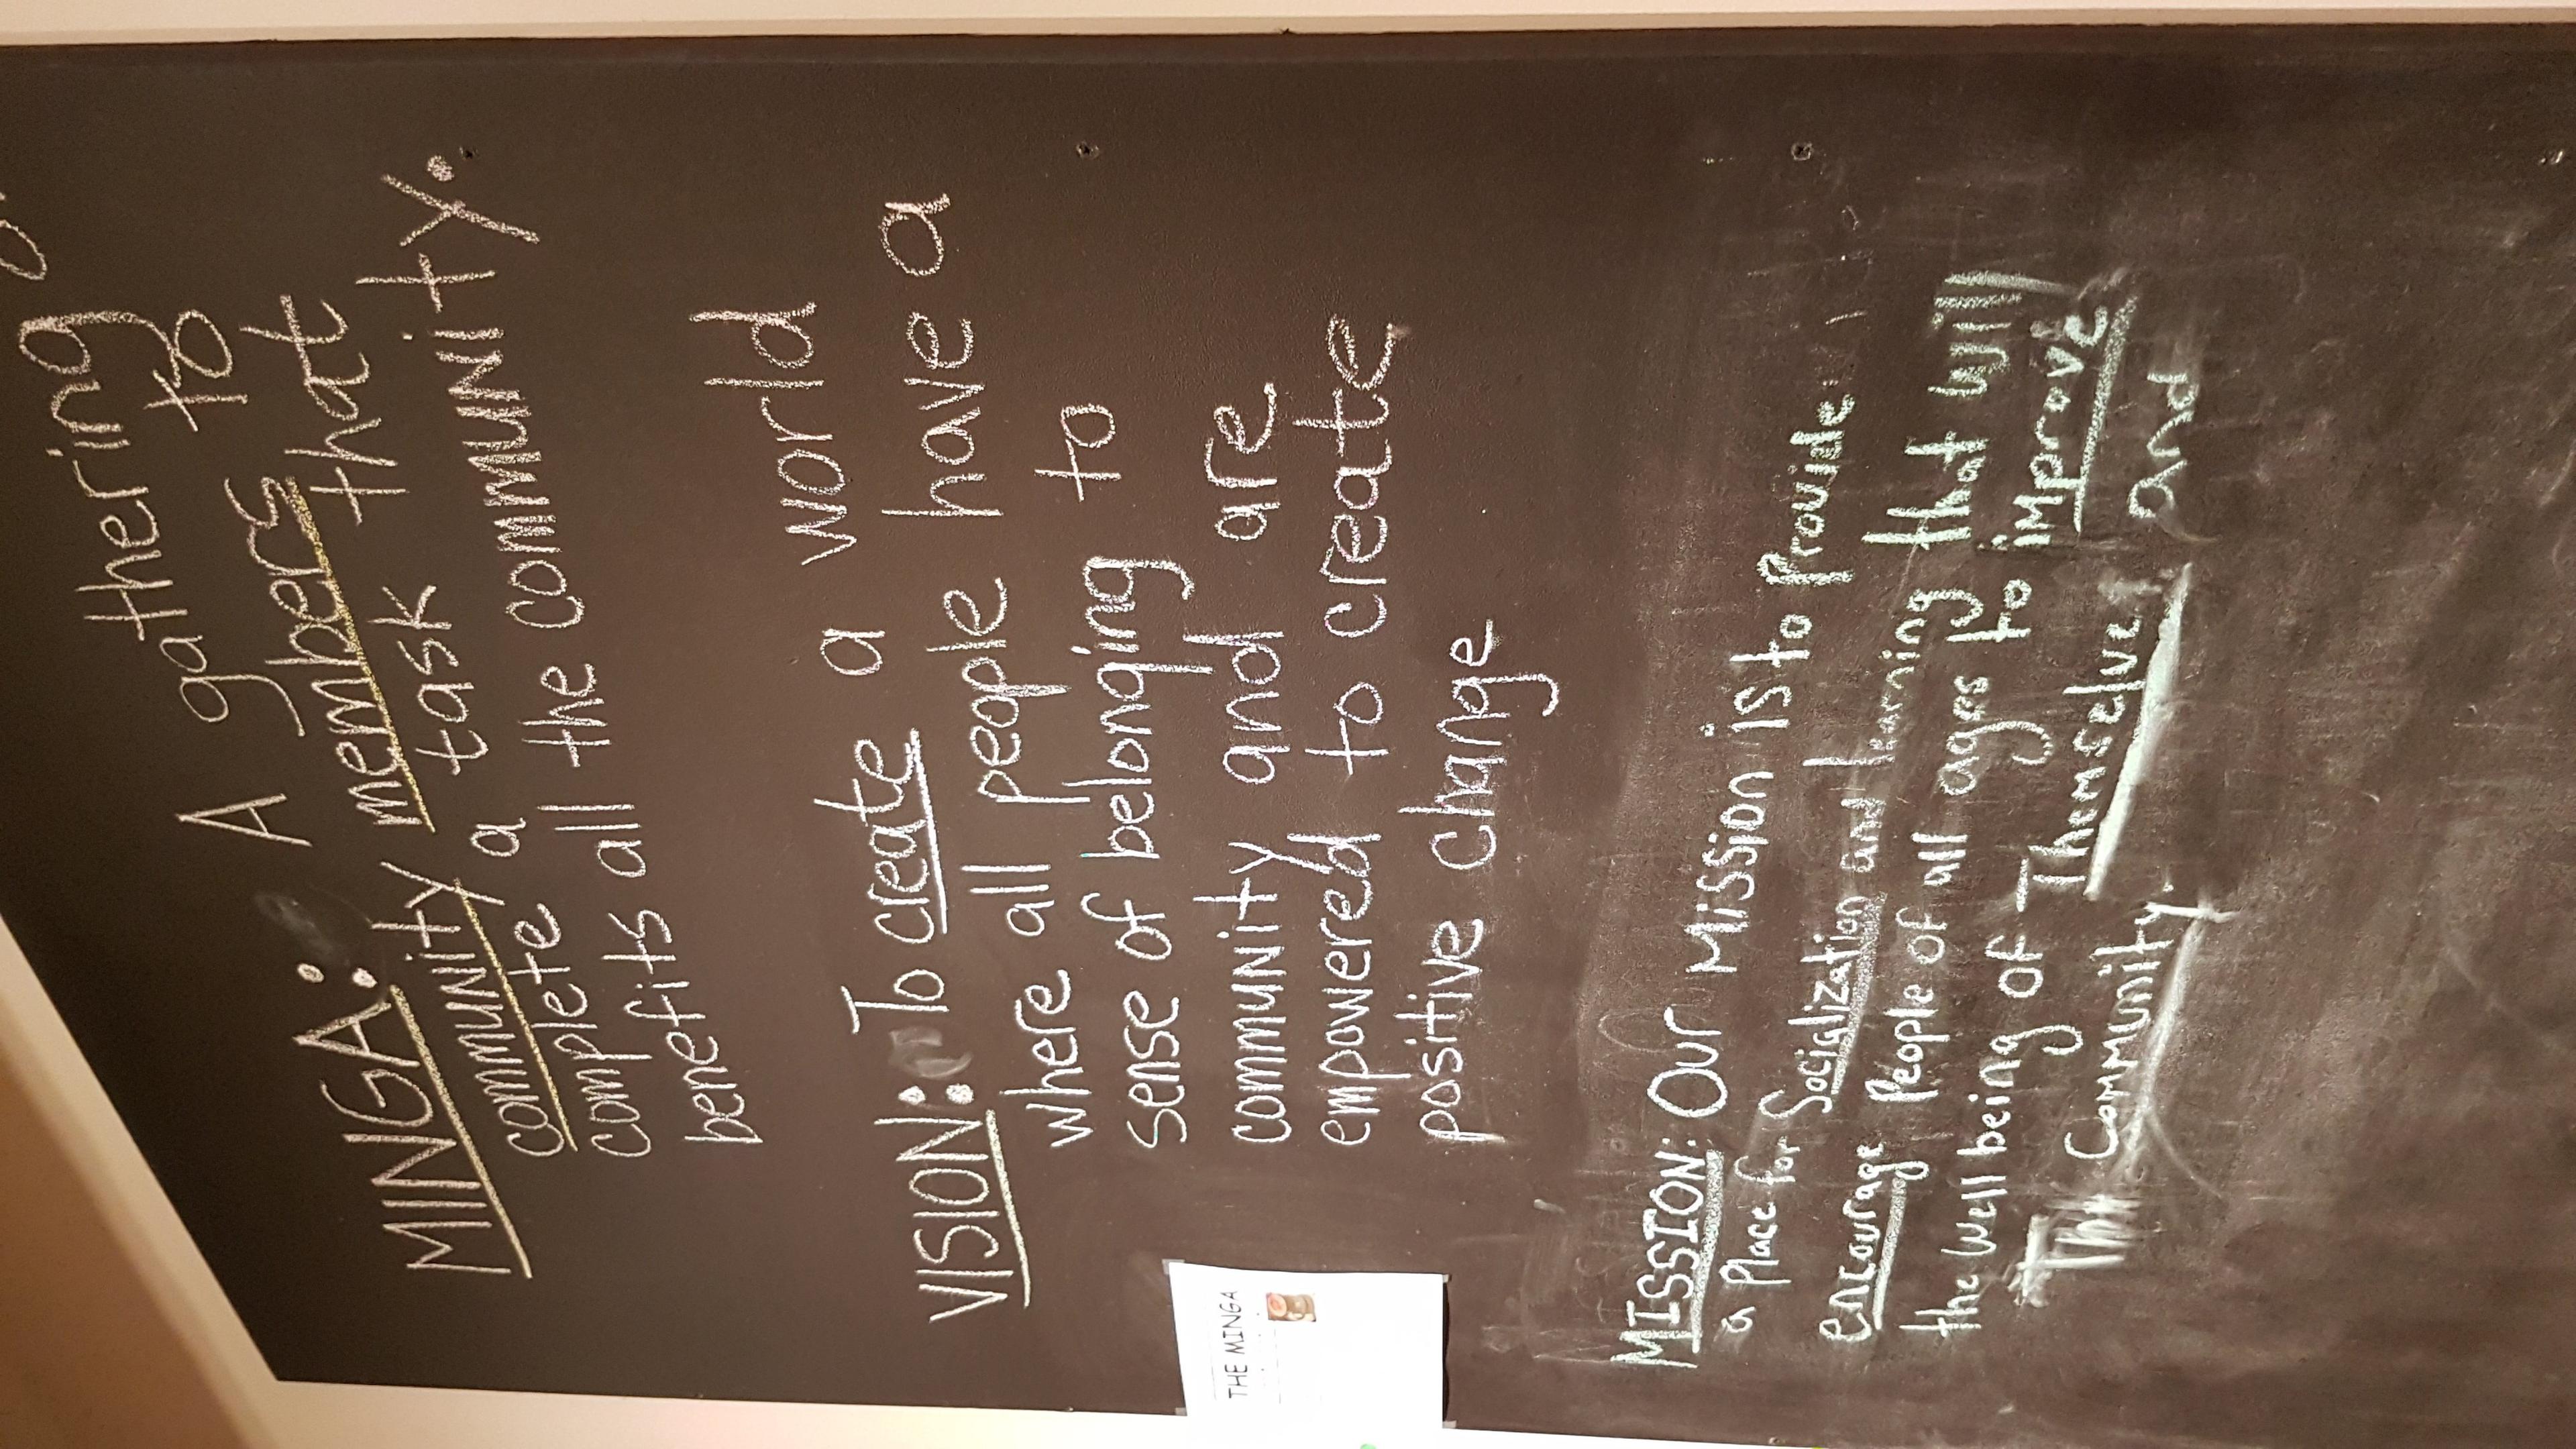 MINGA: A gathering
community members to
complete a task that
benefits all the community.
VISION: To create a world
where all people have a
sense of belonging to
community and are
empowered to create
positive change
THE MINGA
MISSION: Our Mission is to Provide
a Place for Socialization and learning that will
encourage People of all ages to improve
the well being of Themselve and
The Community.